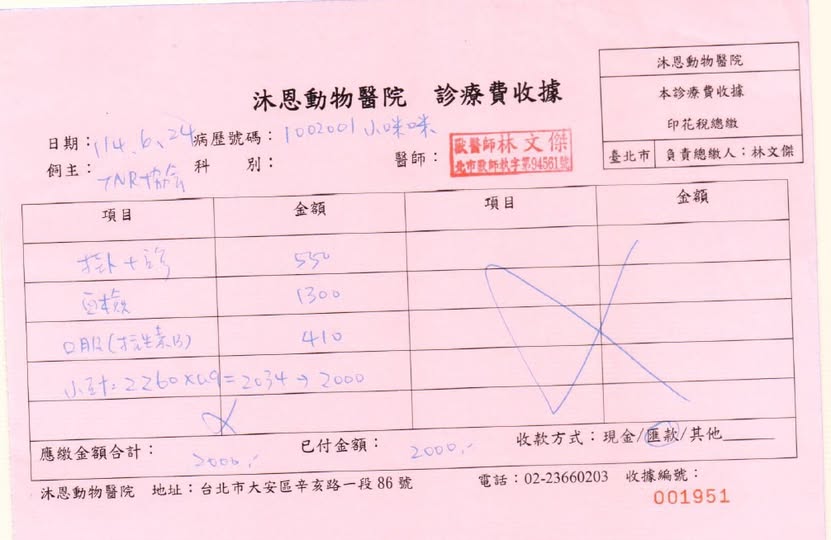 沐恩動物醫院
本診療費收據
印花稅總繳
臺北市 負責總繳人：林文傑
沐恩動物醫院 診療費收據
日期：114.6.24 病歷號碼：1002001 小咪咪
飼主：TNR協會 科 別： 醫師： 獸醫師林文傑
北市獸師執字第94561號
項目 金額 項目 金額
掛+診 550
血檢 1300
口服(抗生素B) 410
小計：2260×0.9=2034→2000
應繳金額合計：2000.- 已付金額：2000.- 收款方式：現金/匯款/其他
沐恩動物醫院 地址：台北市大安區辛亥路一段86號 電話：02-23660203 收據編號：
001951